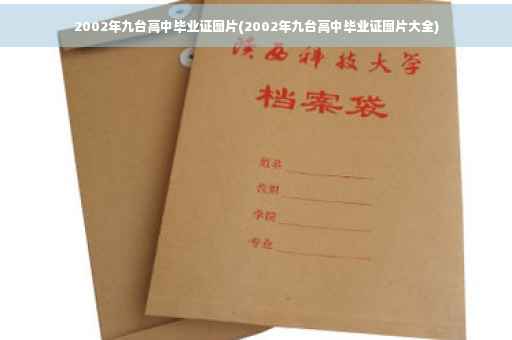 2002年九台高中毕业证图片(2002年九台高中毕业证图片大全)
陕西科技大学
档案袋
姓名
学院
专业